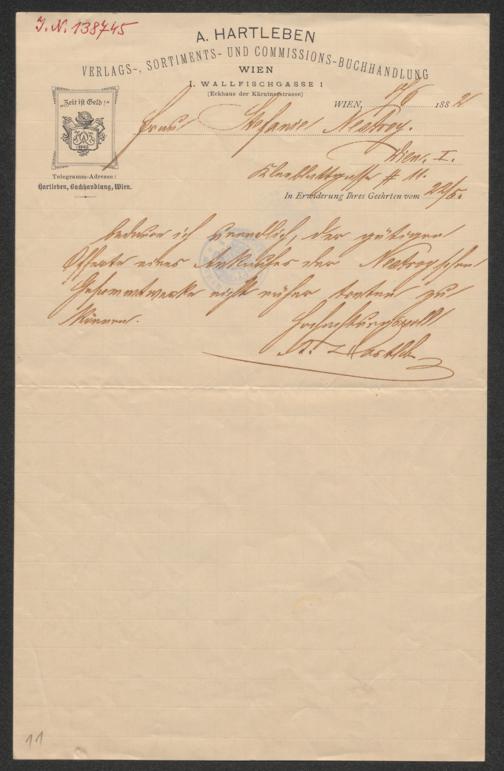 J. N. 138745
A. HARTLEBEN
VERLAGS-, SORTIMENTS- UND COMMISSIONS-BUCHHANDLUNG
WIEN
I. WALLFISCHGASSE 1
(Eckhaus der Kärntnerstrasse)
WIEN, 188 2
„Zeit ist Geld!“
Telegramm-Adresse:
Hartleben, Buchhandlung, Wien.
Frau Stefanie Nestroy.
Wien. I.
# 11.
In Erwiderung Ihres Geehrten vom 22/5.
bedaure ich freundlich, der gütigen
Offerte eines Ankaufes der Nestroy'schen
Gesammtwerke nicht näher treten zu
können.
Hochachtungsvoll
A. Hartleben
11